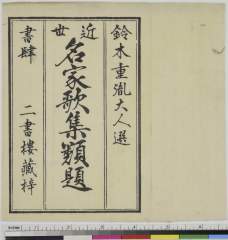 鈴木重胤大人選
近世
名家歌集類題
書肆 二書樓藏梓